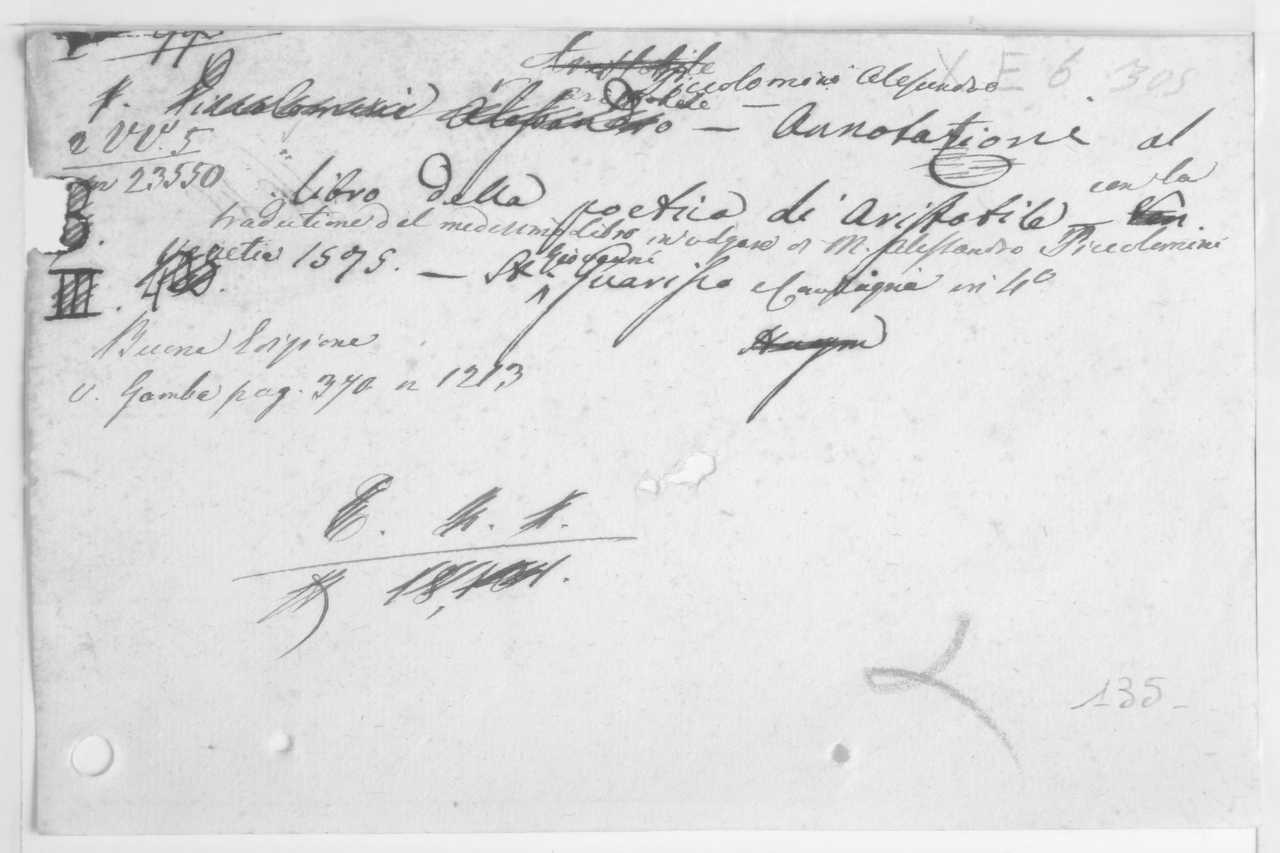 X E 6 305
Aristotile
Piccolomini Alessandro
P. Piccolomini Alessandro — Annotazioni al
2 VV. 5
n 23550
libro della poetica di Aristotile con la
traduttione del medesimo libro in volgare M. Alessandro Piccolomini
Venetia 1575. — Giovanni Guarisco e Compagni in 4º
III.
Haym
Buona Edizione
v. Gamba pag. 370 n 1213
135